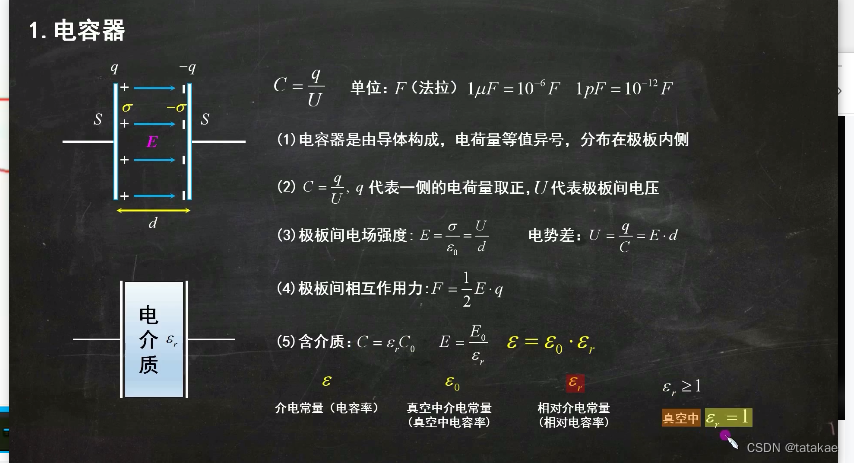 1.电容器
q -q
+ σ -σ
S + S
E
+
+
d
C = q/U 单位: F (法拉) 1μF = 10⁻⁶ F 1pF = 10⁻¹² F
(1)电容器是由导体构成，电荷量等值异号，分布在极板内侧
(2) C = q/U, q 代表一侧的电荷量取正, U 代表极板间电压
(3)极板间电场强度: E = σ/ε₀ = U/d 电势差: U = q/C = E·d
(4)极板间相互作用力: F = 1/2 E·q
电介质 εᵣ
(5)含介质: C = εᵣC₀ E = E₀/εᵣ ε = ε₀·εᵣ
ε ε₀ εᵣ εᵣ ≥ 1
介电常量（电容率） 真空中介电常量 相对介电常量 真空中 εᵣ = 1
（真空中电容率） （相对电容率）
CSDN @tatakae